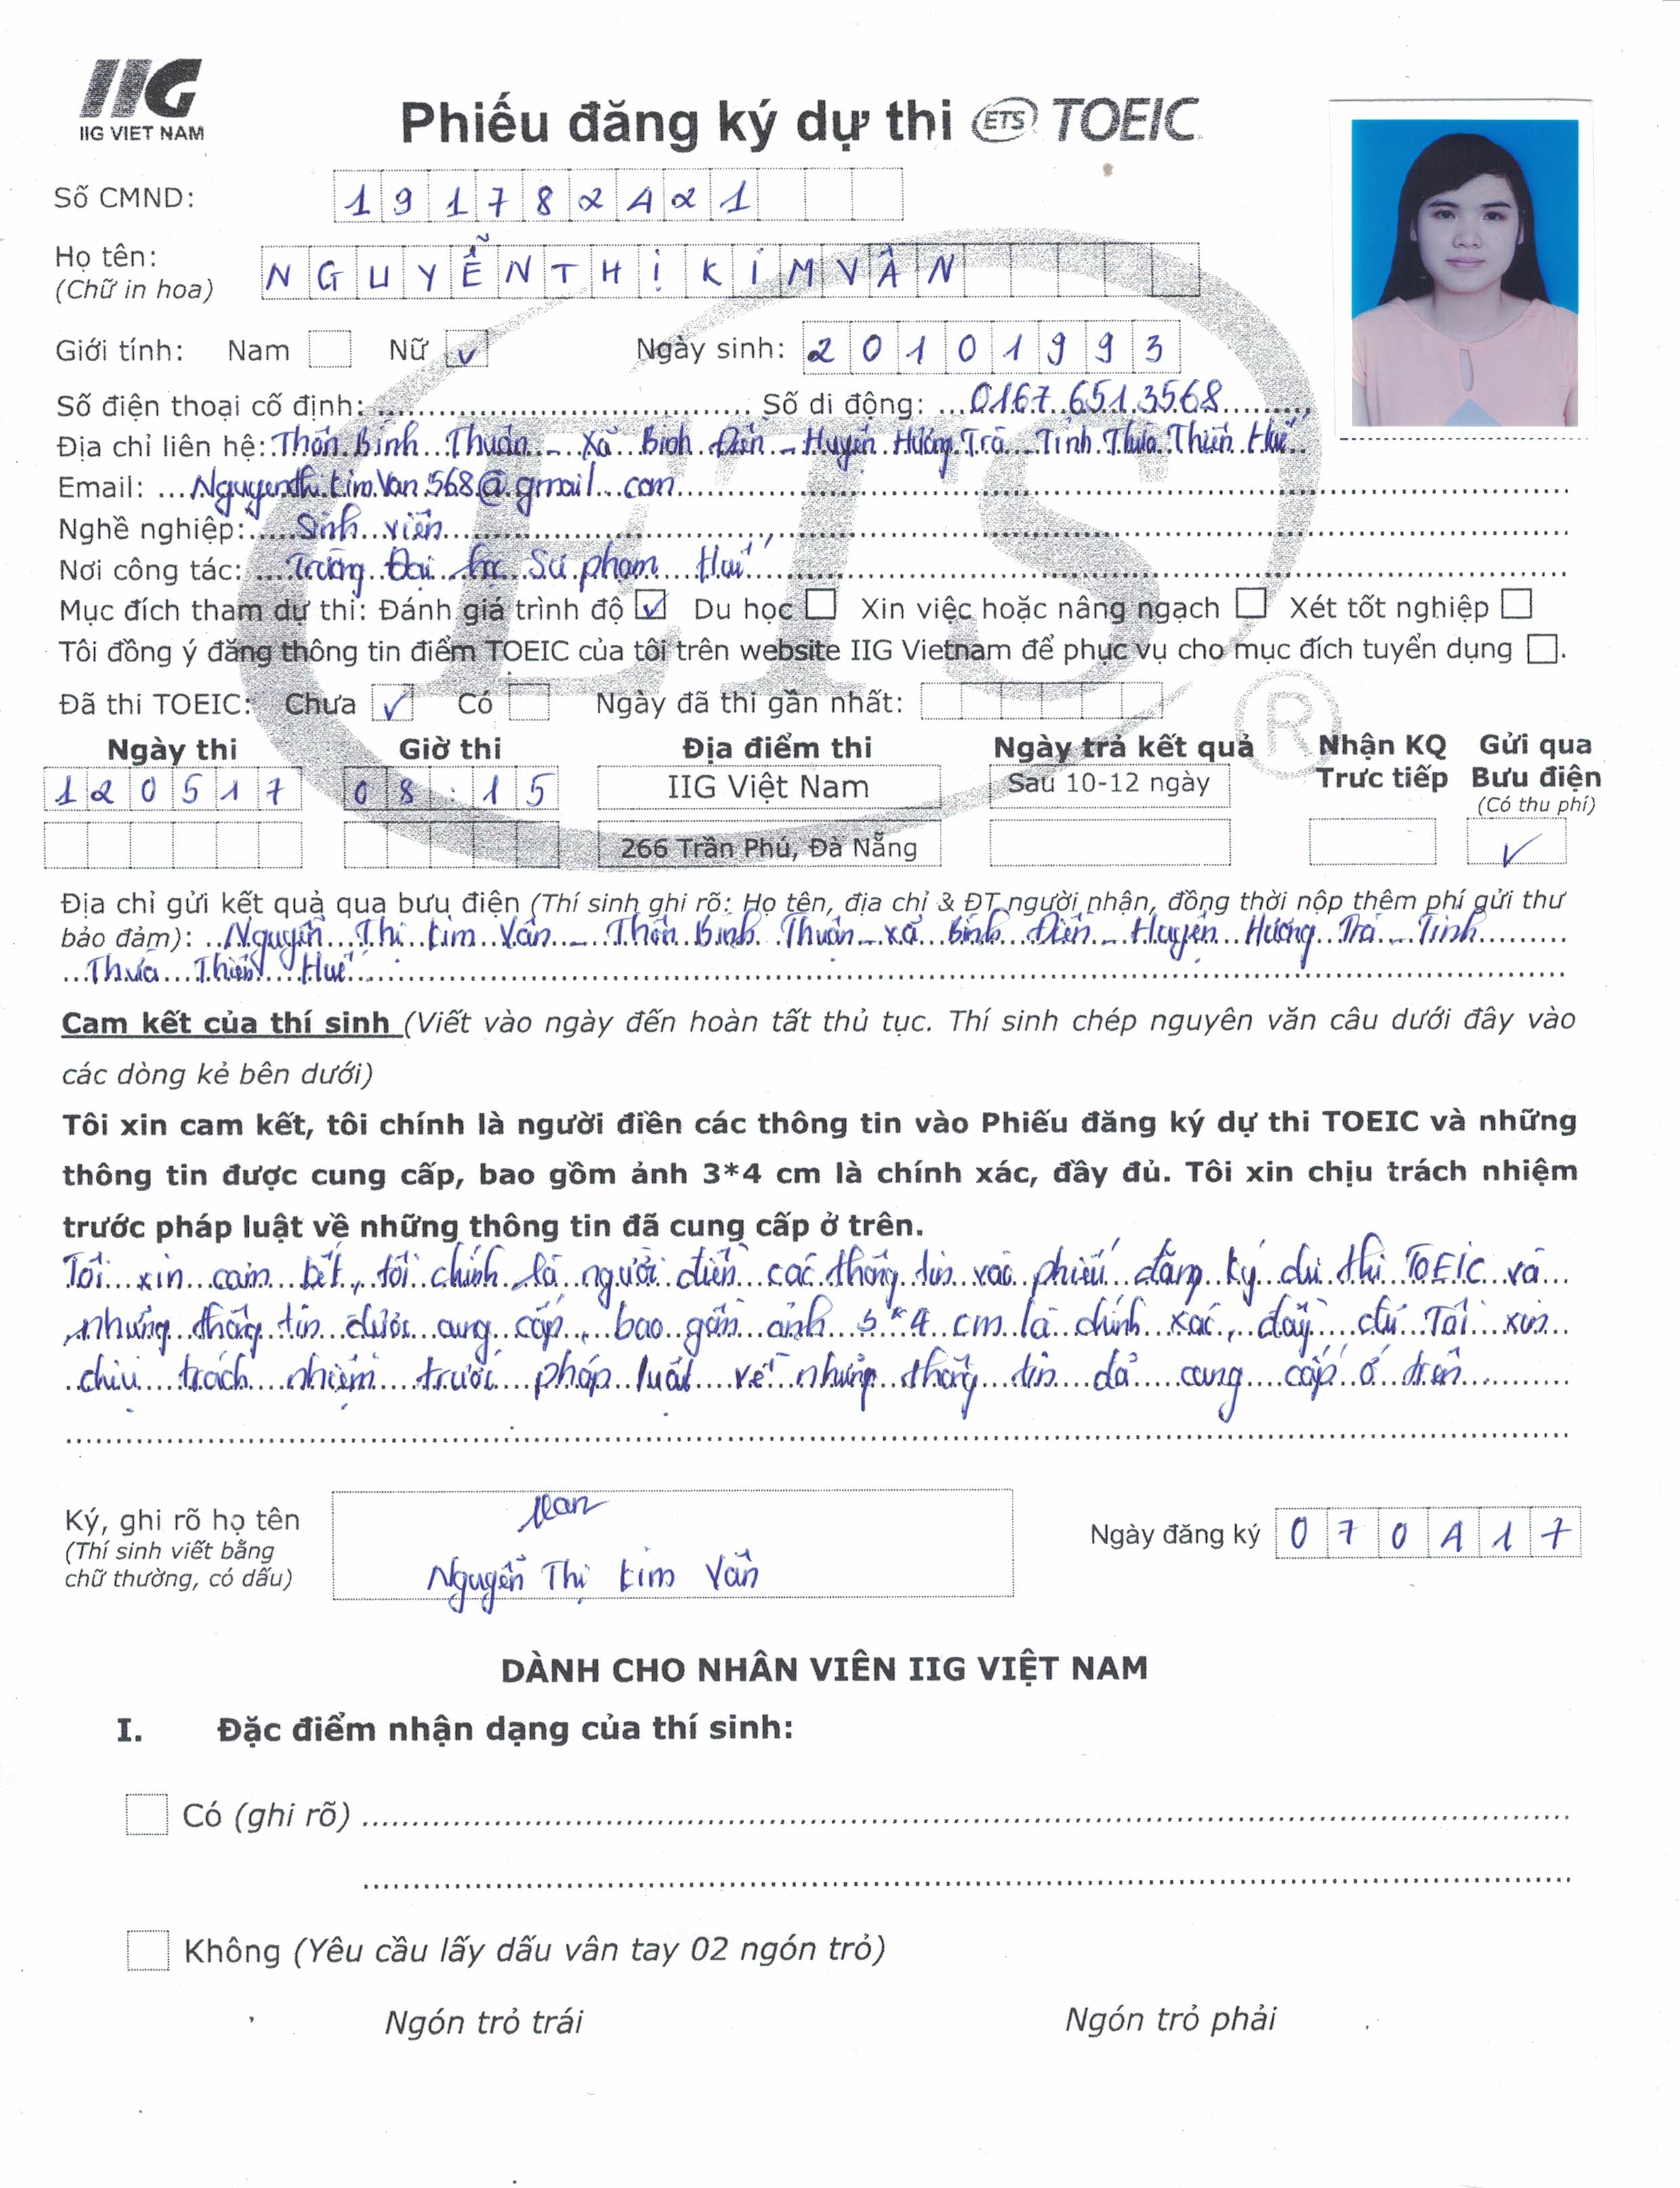 IIG
IIG VIET NAM
Phiếu đăng ký dự thi ETS TOEIC
Số CMND: 191782421
Họ tên: NGUYỄN THỊ KIM VÂN
(Chữ in hoa)
Giới tính: Nam Nữ v Ngày sinh: 20101993
Số điện thoại cố định: Số di động: 0167.651.3568
Địa chỉ liên hệ: Thôn Bình Thuận - Xã Bình Điền - Huyện Hương Trà - Tỉnh Thừa Thiên Huế
Email: Nguyenthikimvan568@gmail.com
Nghề nghiệp: Sinh viên
Nơi công tác: Trường Đại học Sư phạm Huế
Mục đích tham dự thi: Đánh giá trình độ ✓ Du học Xin việc hoặc nâng ngạch Xét tốt nghiệp
Tôi đồng ý đăng thông tin điểm TOEIC của tôi trên website IIG Vietnam để phục vụ cho mục đích tuyển dụng .
Đã thi TOEIC: Chưa ✓ Có Ngày đã thi gần nhất:
Ngày thi Giờ thi Địa điểm thi Ngày trả kết quả Nhận KQ Trực tiếp Gửi qua Bưu điện
(Có thu phí)
120517 08:15 IIG Việt Nam Sau 10-12 ngày
266 Trần Phú, Đà Nẵng ✓
ETS ®
Địa chỉ gửi kết quả qua bưu điện (Thí sinh ghi rõ: Họ tên, địa chỉ & ĐT người nhận, đồng thời nộp thêm phí gửi thư
bảo đảm): Nguyễn Thị Kim Vân - Thôn Bình Thuận - xã Bình Điền - Huyện Hương Trà - Tỉnh
Thừa Thiên Huế
Cam kết của thí sinh (Viết vào ngày đến hoàn tất thủ tục. Thí sinh chép nguyên văn câu dưới đây vào
các dòng kẻ bên dưới)
Tôi xin cam kết, tôi chính là người điền các thông tin vào Phiếu đăng ký dự thi TOEIC và những
thông tin được cung cấp, bao gồm ảnh 3*4 cm là chính xác, đầy đủ. Tôi xin chịu trách nhiệm
trước pháp luật về những thông tin đã cung cấp ở trên.
Tôi xin cam kết, tôi chính là người điền các thông tin vào phiếu đăng ký dự thi TOEIC và
những thông tin được cung cấp, bao gồm ảnh 3*4 cm là chính xác, đầy đủ. Tôi xin
chịu trách nhiệm trước pháp luật về những thông tin đã cung cấp ở trên
Ký, ghi rõ họ tên
(Thí sinh viết bằng
chữ thường, có dấu)
Nguyễn Thị Kim Vân
Ngày đăng ký 070417
DÀNH CHO NHÂN VIÊN IIG VIỆT NAM
I. Đặc điểm nhận dạng của thí sinh:
Có (ghi rõ)
Không (Yêu cầu lấy dấu vân tay 02 ngón trỏ)
Ngón trỏ trái Ngón trỏ phải